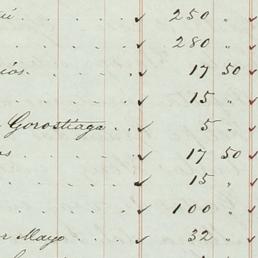 250 "
280 "
17 50
15 "
Gorostiaga . . 5 "
os . . . 17 50
15 "
100 "
r Mayo . . . 32 "